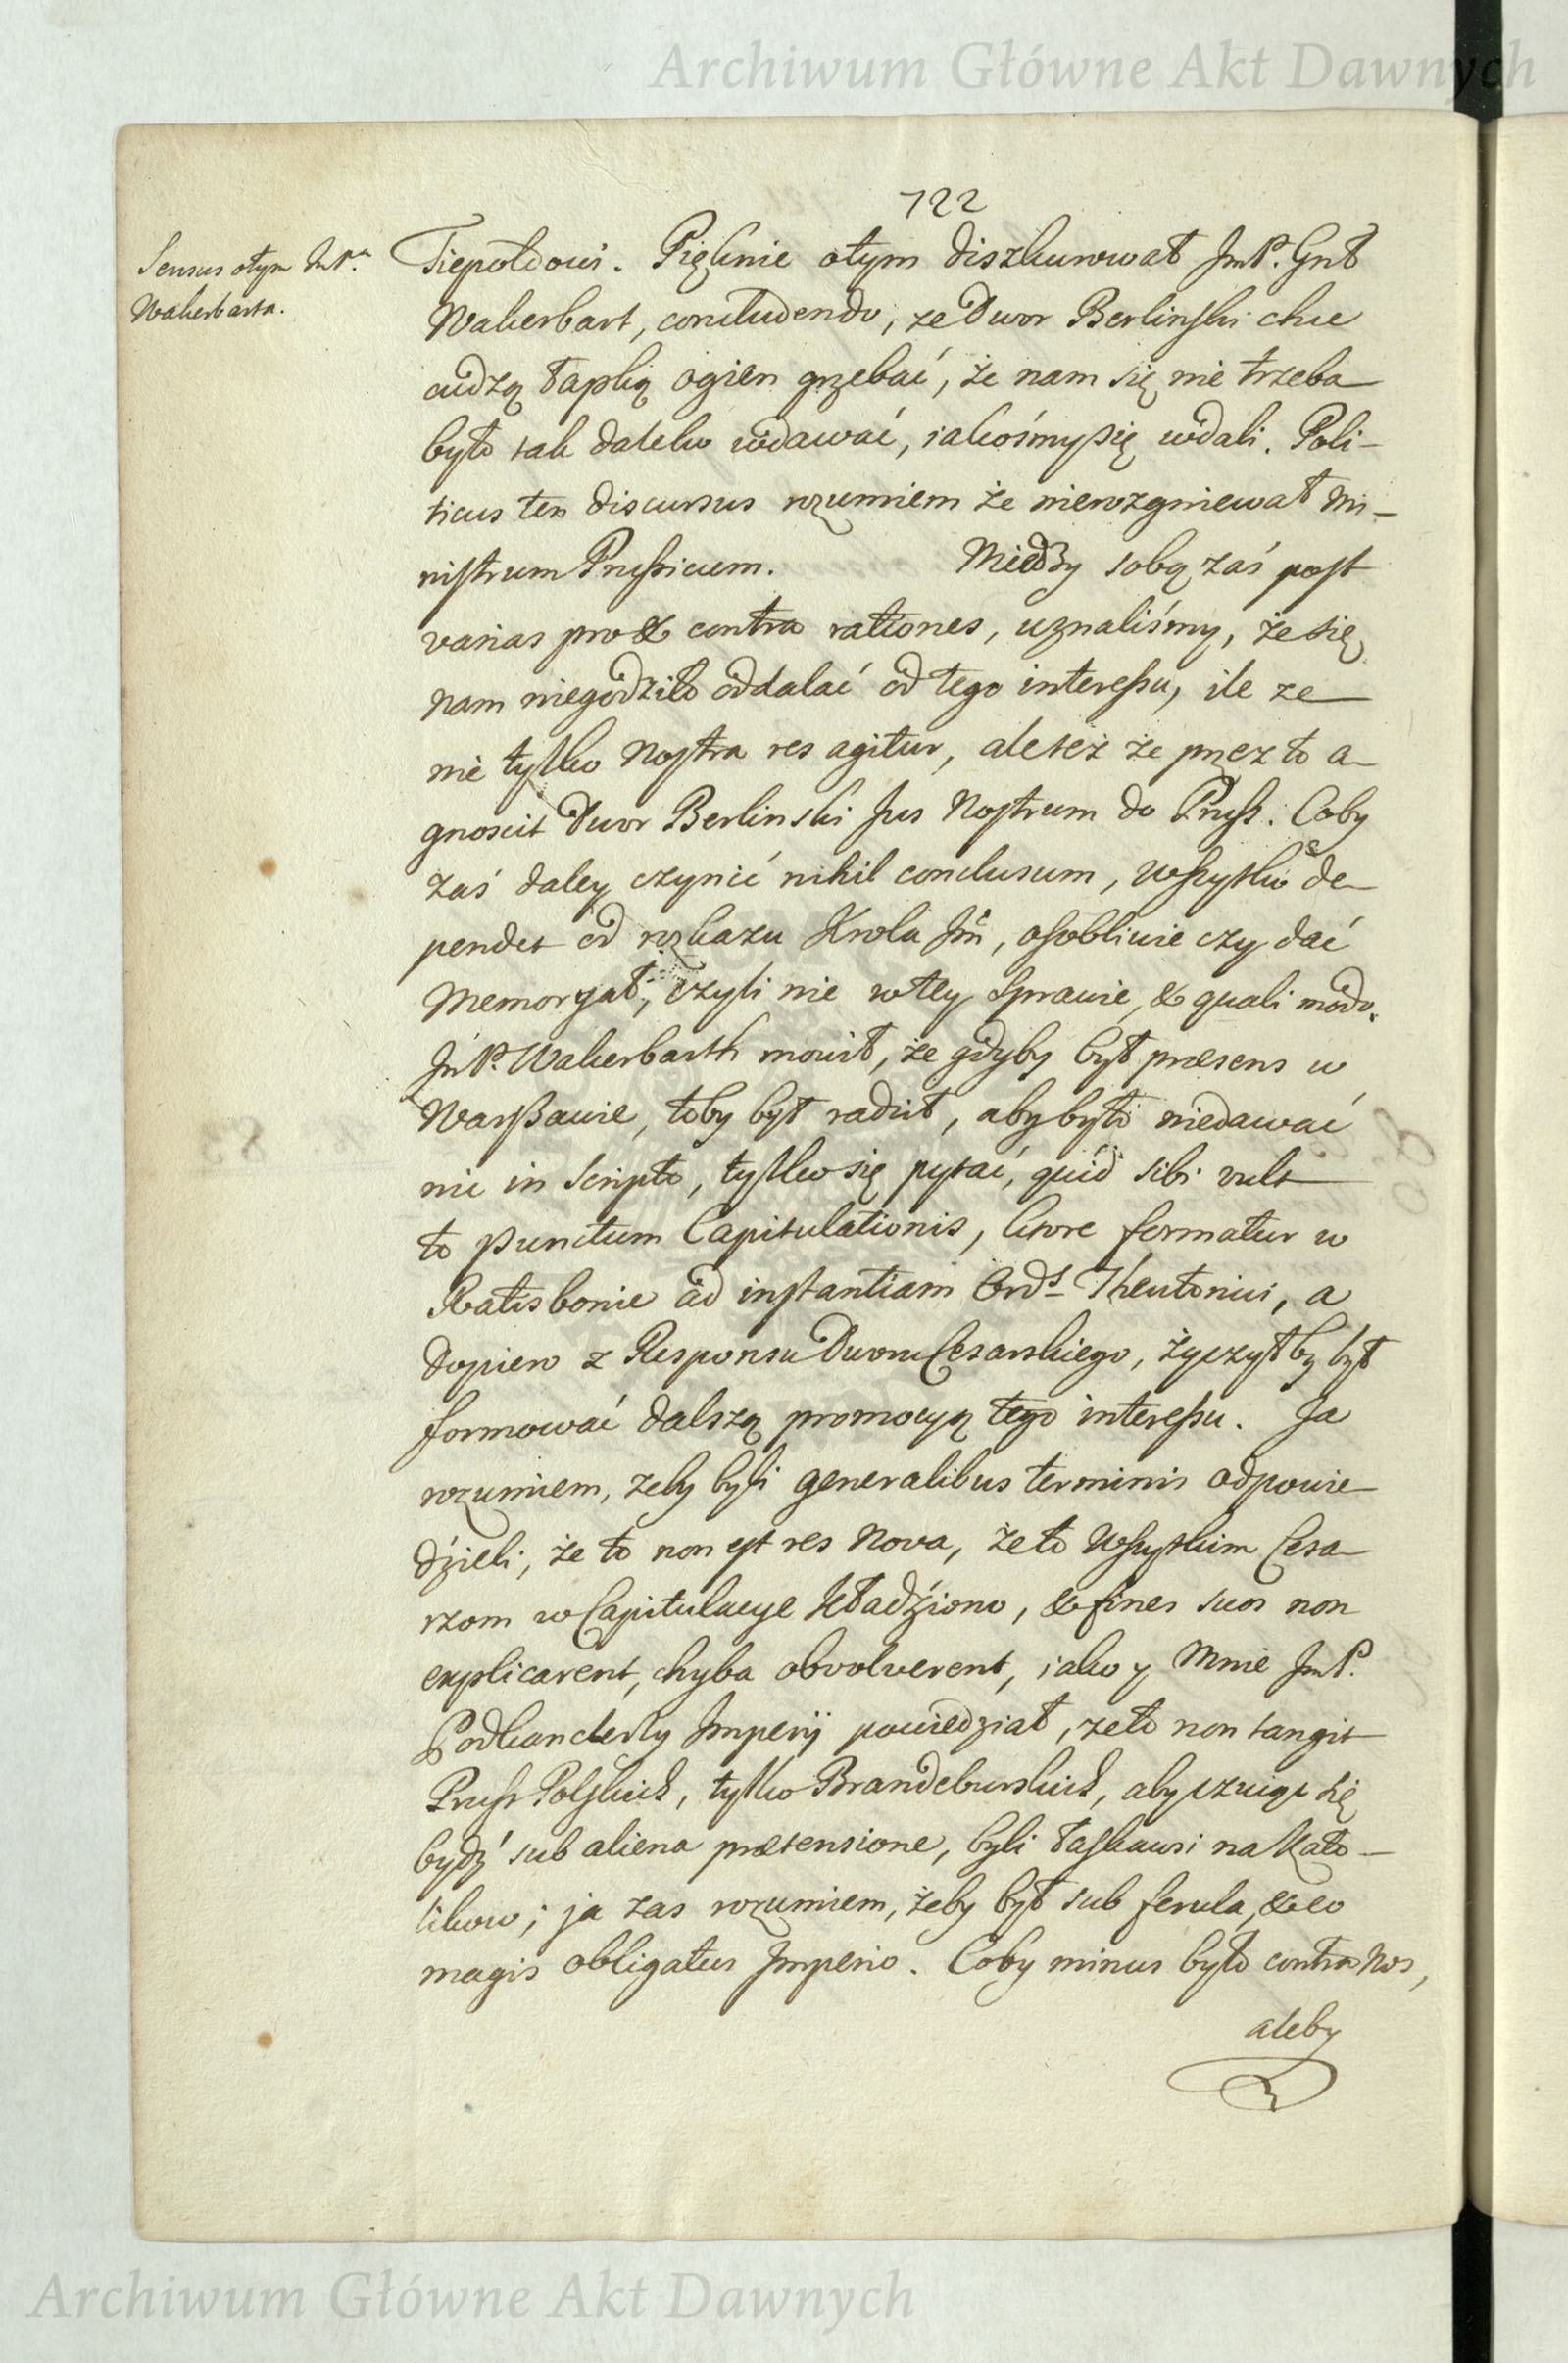 Archiwum Główne Akt Dawnych
722
Sensus otym JmP.ª
Wakerbarta.
Tiepołdowi. Pięknie otym diszkurował JmP. Gnł
Wakerbart, concludendo, ze Dwor Berlinski chce
cudzą łapką ogien grzebać, że nam się nie trzeba
było tak daleko wdawać, iakośmysię wdali. Poli-
ticus ten discursus rozumiem że nierozgniewał Mi-
nistrum Prussicum. Między sobą zaś post
varias pro & contra rationes, uznaliśmy, że się
nam niegodziło oddalać od tego interessu, ile ze
nie tylko Nostra res agitur, ale też że przez to a-
gnoscit Dwor Berlinski Jus Nostrum do Pruss. Coby
zaś daley czynić nihil conclusum, wszytko de-
pendet od rozkazu Krola Jm̃, osobliwie czy dać
Memoryał, czyli nie wtey Sprawie, & quali modo.
JmP. Wakerbarth mowił, że gdyby był præsens w
Warszawie, toby był radził, aby było niedawać
nic in Scripto, tylko się pytać, quid sibi vult
to punctum Capitulationis, ktore formatur w
Ratisbonie ad instantiam Ords Theutonici, a
dopiero z Responsu Dworu Cesarskiego, życzyłby był
formować dalszą promocyą tego interessu. Ja
rozumiem, zeby byli generalibus terminis odpowie-
dzieli, że to non est res Nova, że to Wszytkim Cesa-
rzom w Capitulacye kładziono, & fines suos non
explicarent, chyba obvolverent, iako y Mnie JmP.
Podkanclerzy Imperÿ powiedział, ze to non tangit
Pruss Polskich, tylko Brandeburskich, aby czuiąc się
bydź sub aliena prætensione, byli łaskawsi na Kato-
likow; ja zas rozumiem, żeby był sub ferula, & eo
magis obligatus Imperio. Coby minus było contra Nos,
aleby
Archiwum Główne Akt Dawnych